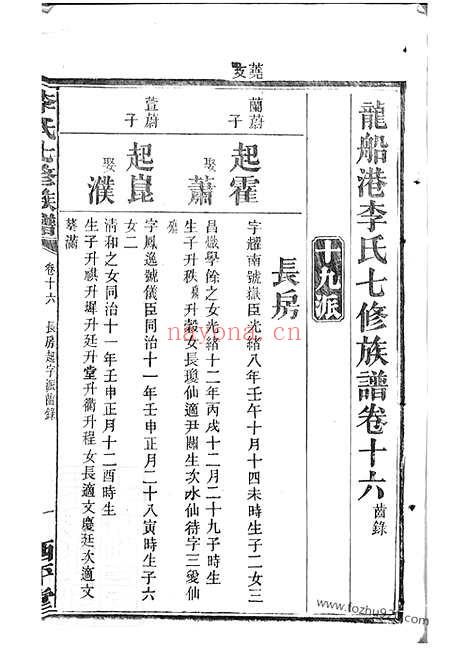 堯支
龍船港李氏七修族譜卷十六 齒錄
十九派
長房
蘭蔚子
起霍
字耀南號嶽臣光緒八年壬午十月十四未時生子二女三
娶蕭
昌熾學餘之女光緒十二年丙戌十二月二十九子時生
生子升秩 升穀女長瓊仙適尹關生次水仙待字三愛仙
萱蔚子
起崑
字鳳逸號儀臣同治十一年壬申正月二十八寅時生子六
女二
娶濮
清和之女同治十一年壬申正月十二酉時生
生子升麒升墀升廷升堂升衢升程女長適文慶廷次適文
葵滿
李氏七修族譜
卷十六
長房起字派齒錄
一
西平堂
nayona.cn
www.fozhu920.com